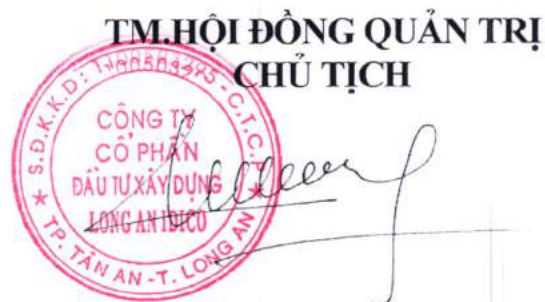 TM.HỘI ĐỒNG QUẢN TRỊ
CHỦ TỊCH
S.Đ.K.K.D:
C.T.C.P
CÔNG TY
CỔ PHẦN
ĐẦU TƯ XÂY DỰNG
LONG AN IDICO
TP. TÂN AN - T. LONG AN